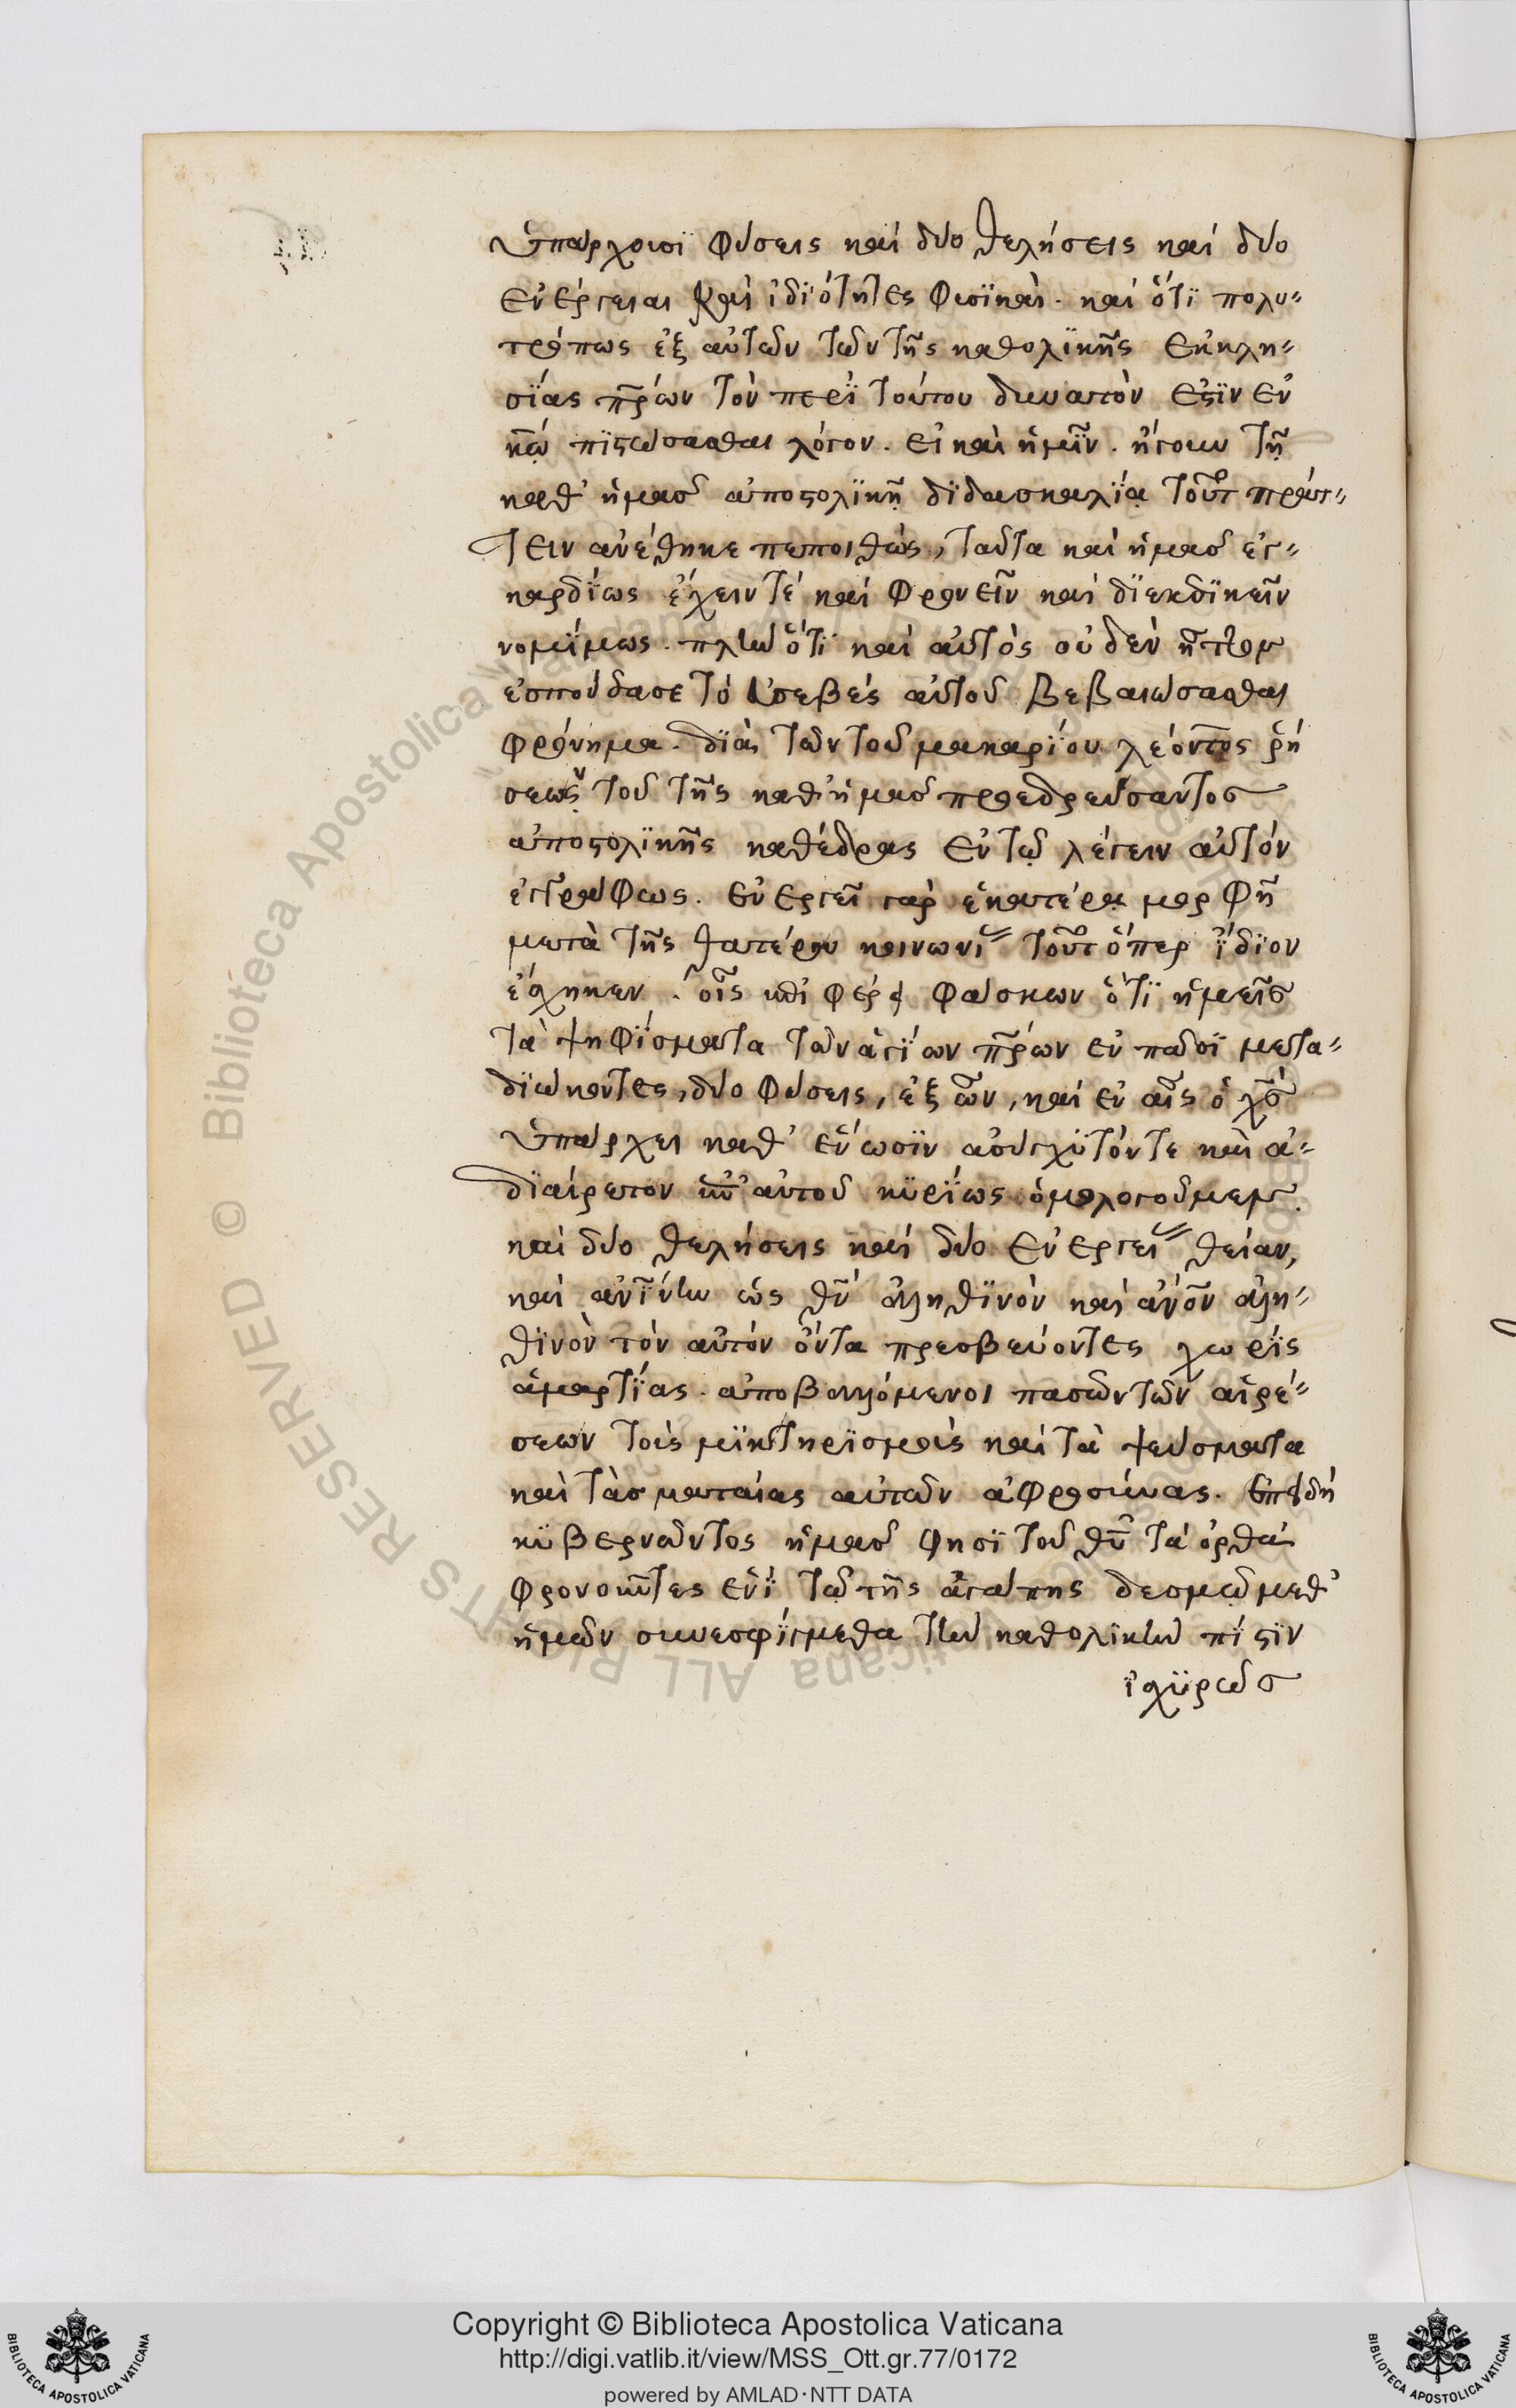 ὑπάρχουσϊ φύσεις καὶ δύο θελήσεις καὶ δύο
ἐνέργειαι καὶ ἰδϊότητες φυσϊκαὶ. καὶ ὅτϊ πολυ-
τρόπως ἐξ αὐτῶν τῶν τῆς καθολϊκῆς ἐκκλη-
σΐας π̅ρ̅ων τὸν περῒ τούτου δυνατὸν ἐϛϊν ἐν
πϊϛώσασθαι λόγον. εἰ καὶ ἡμῖν. ἤγουν τῇ
καθ' ἡμᾶσ ἀποϛολϊκῇ δϊδασκαλΐᾳ τοῦτο πράτ-
τειν ἀνέθηκε πεποιθὼς, ταῦτα καὶ ἡμᾶσ ἐγ-
καρδΐως ἔχειν τὲ καὶ φρονεῖν καὶ δϊεκδϊκεῖν
νομΐμως. πλὴν ὅτϊ καὶ αὐτὸς οὐδὲν ἧττον
ἐσπούδασε τὸ εὐσεβὲς αὐτοῦ βεβαιώσασθαι
φρόνημα. δϊὰ τῶν τοῦ μακαρΐου λέοντος ῥή
σεων τοῦ τῆς καθ' ἡμᾶσ προεδρεύσαντοσ
ἀποϛολϊκῆς καθέδρας ἐν τῷ λέγειν αὐτὸν
ἐγγράφως. ἐνεργεῖ γὰρ ἑκατέρᾳ μορφῇ
μετὰ τῆς θατέρου κοινωνί̋ τοῦτο ὅπερ ἴδϊον
ἔσχηκεν. οἷς φάσκων ὅτϊ ἡμεῖσ
τὰ ψηφΐσματα τῶν ἁγΐων π̅ρ̅ων ἐν πᾶσϊ μετα-
δϊώκοντες, δύο φύσεις, ἐξ ὧν, καὶ ἐν αἷς ὁ χ̅σ̅
ὑπάρχει καθ' ἕνωσϊν ἀσύγχϋτόν τε καὶ ἀ-
δϊαίρετον ἐπ' αὐτοῦ κϋρΐως ὁμολογοῦμεν.
καὶ δύο θελήσεις καὶ δύο ἐνεργεί̋ θείαν,
καὶ ἀν̅ΐνην ὡς θ̅ν̅ ἀληθϊνὸν καὶ ἄν̅ο̅ν ἀλη-
θϊνὸν τὸν αὐτὸν ὄντα πρεσβεύοντες χωρῒς
ἁμαρτΐας. ἀποβαλλόμενοι πασῶν τῶν αἱρέ-
σεων τοὺς μϊκτηρϊσμοὺς καὶ τὰ ψεύσματα
καὶ τὰσ ματαίας αὐτῶν ἀφροσύνας. ἐπειδὴ
κϋβερνῶντος ἡμᾶσ φησῒ τοῦ θ̅υ̅ τὰ ὀρθὰ
φρονοῦντες ἑνῒ τῷ τῆς ἀγάπης δεσμῷ μεθ'
ἡμῶν συνεσφΐγμεθα τὴν καθολϊκὴν πίϛϊν
ἰσχϋρῶσ